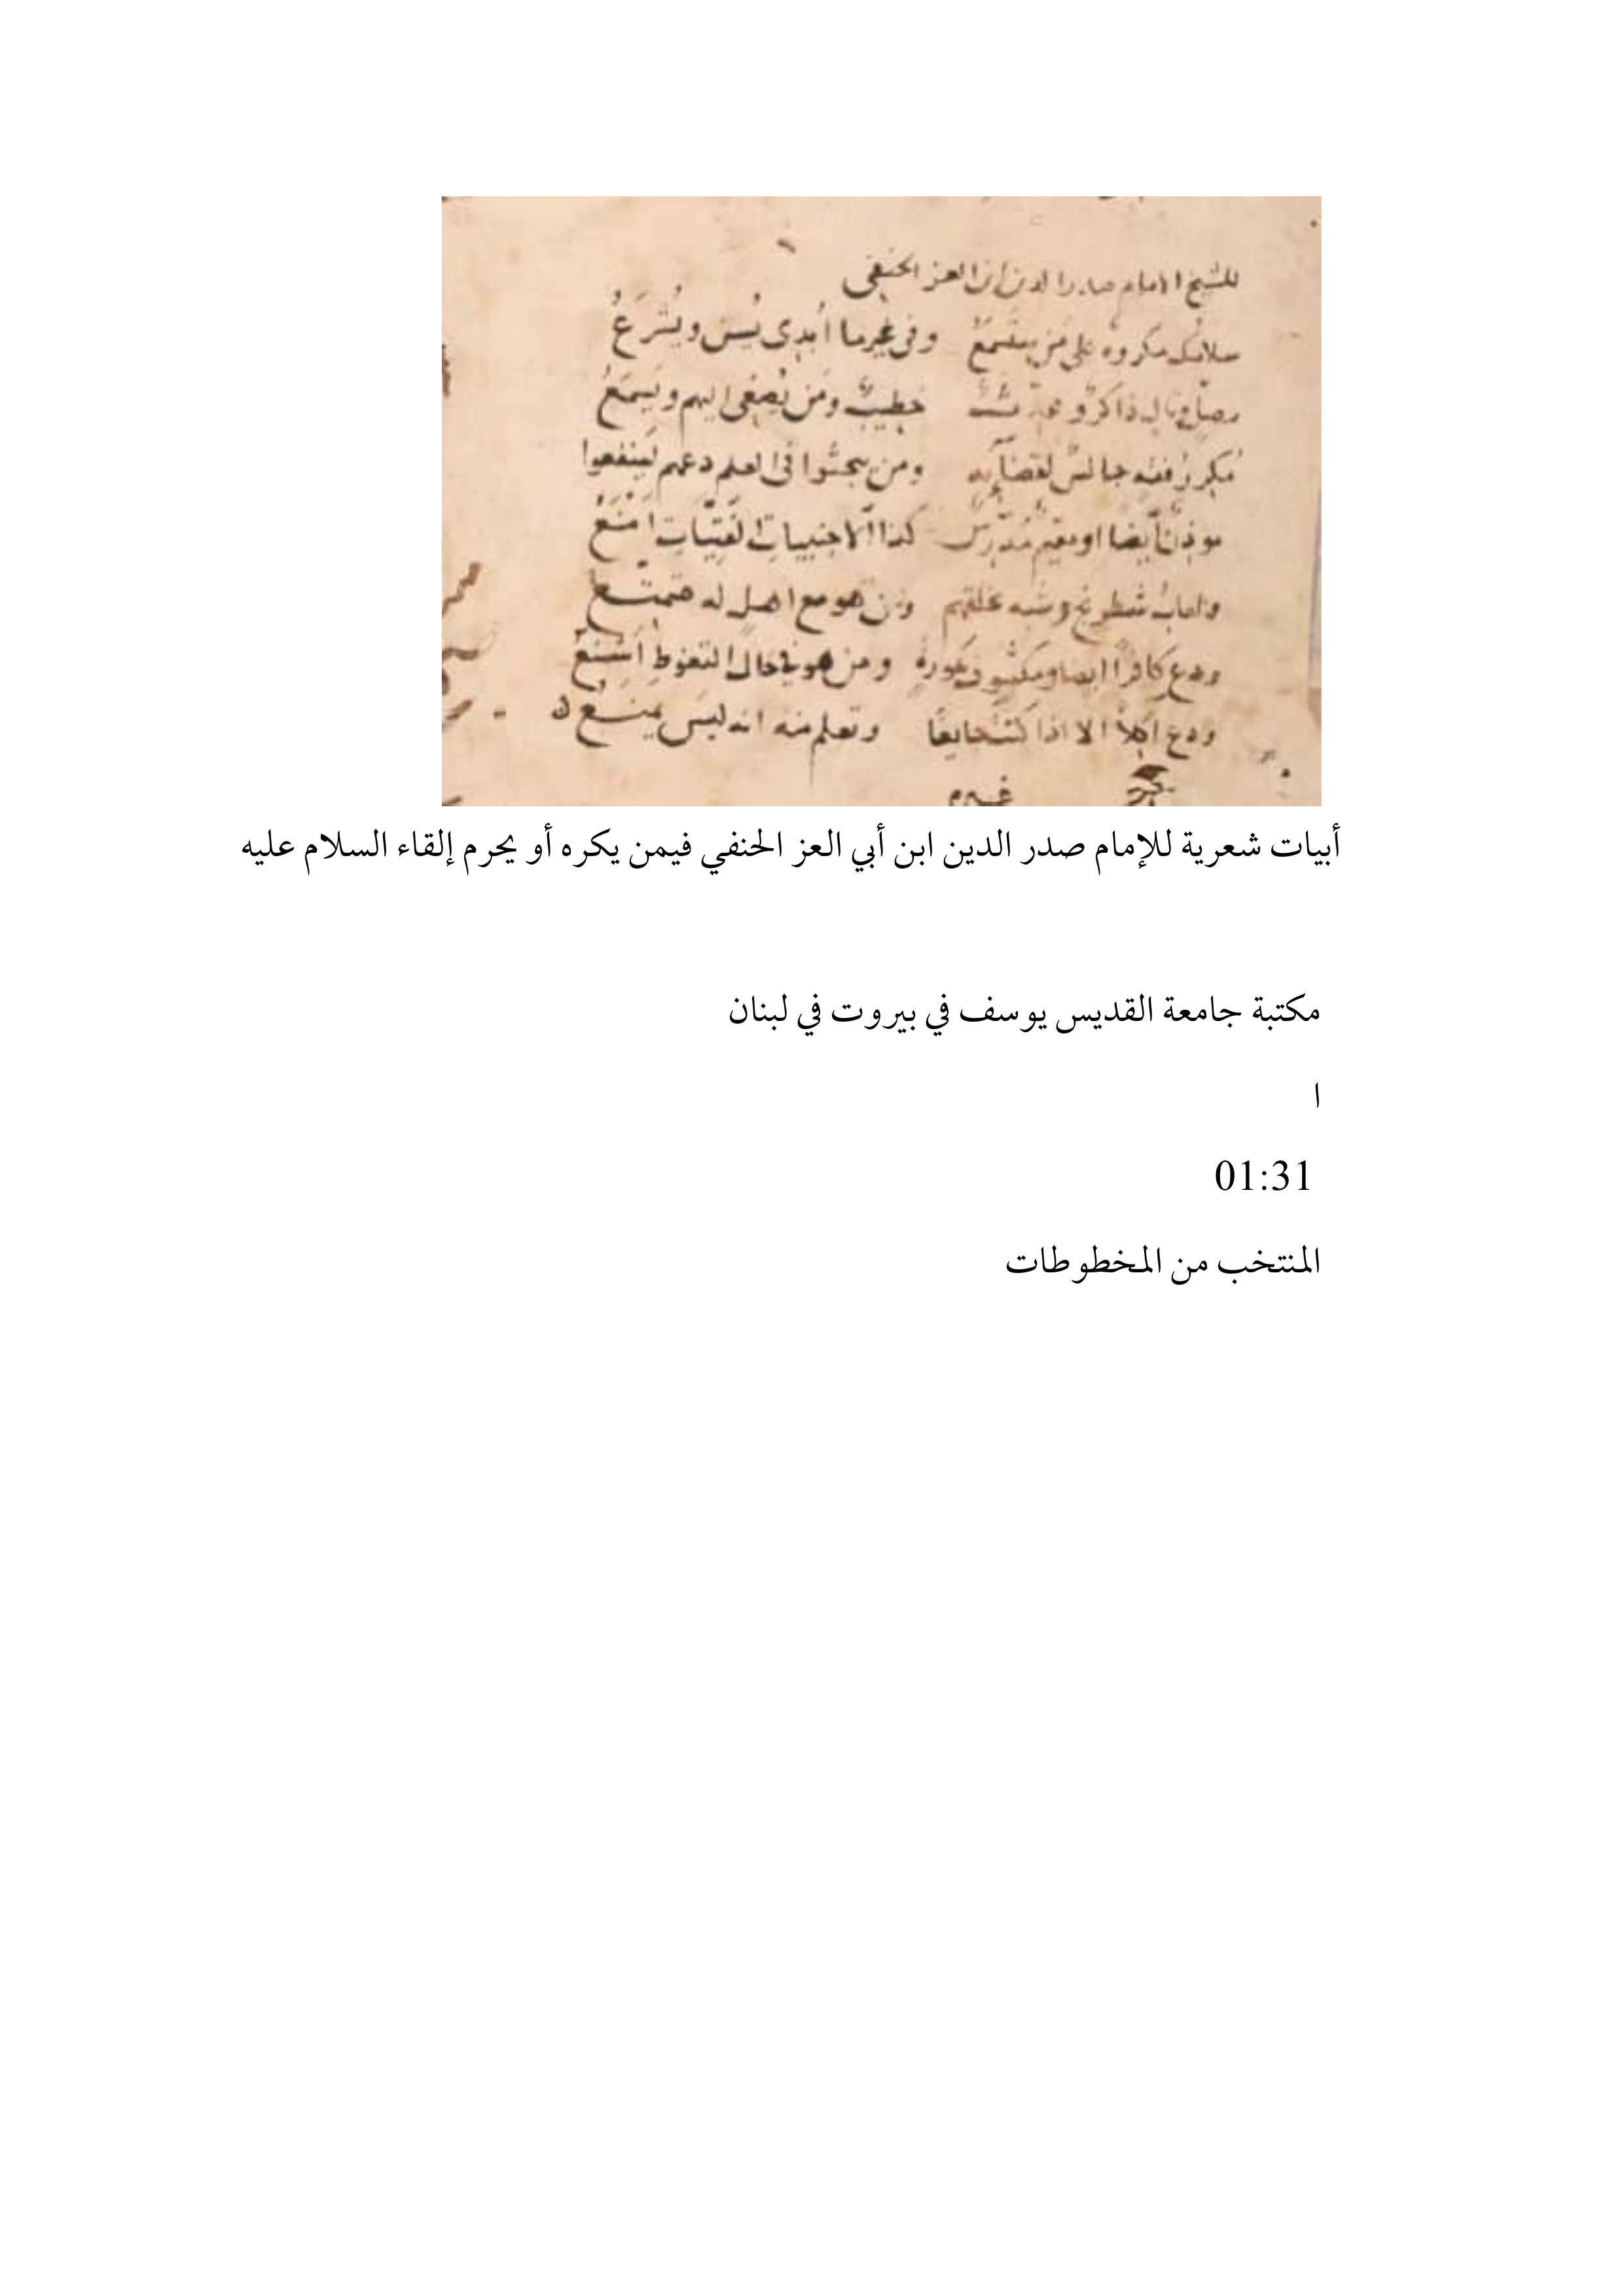 للشيخ الامام صدر الدين ابن العز الحنفي
سلامك مكروه على من ستسمع وفي غير ما أبدي يُسن ويُشرَعُ
مصل وتال ذاكر ومحدث خطيب ومن يُصغي اليهم ويَسمَعُ
مُكرر فقه جالس لقضايه ومن بحثوا في العلم دعهم لينفعوا
موذن أيضا او مقيم مُدرس كذا الاجنبيات الفَتيّات امنَعُ
ولعاب شطرنج وشبه بخلقهم ومن هو مع اهل له يتمتع
ودع كافرا ايضا ومكشوف عورة ومن هو في حال التغوط اشنع
ودع اكلا الا اذا كنت جايعا وتعلم منه انه ليس يمنع
غيره
أبيات شعرية للإمام صدر الدين ابن أبي العز الحنفي فيمن يكره أو يحرم إلقاء السلام عليه
مكتبة جامعة القديس يوسف في بيروت في لبنان
ا
01:31
المنتخب من المخطوطات